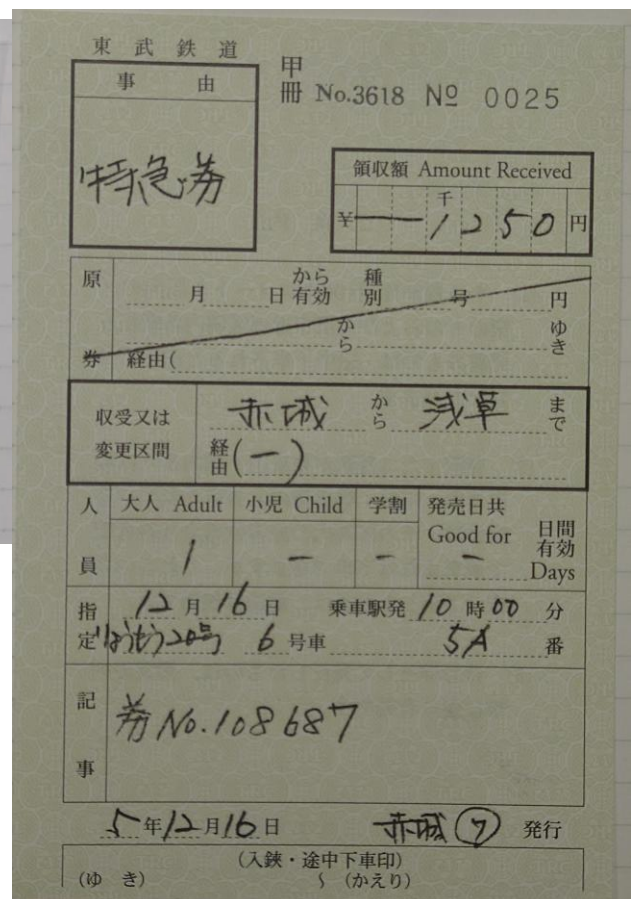 東武鉄道
事由
特急券
甲
冊 No.3618 № 0025
領収額 Amount Received
千
¥ ーー1250円
原券
月 日から有効 種別 号 円
から ゆき
経由(
収受又は変更区間
赤城から浅草まで
経由(ー)
人員
大人 Adult 小児 Child 学割 発売日共 Good for 日間有効 Days
1 ー ー ー
指定
12月16日 乗車駅発10時00分
りょうもう20号 6号車 5A番
記事
券No.108687
5年12月16日 赤城 ㋐ 発行
(入鋏・途中下車印)
(ゆ き) 〜 (かえり)